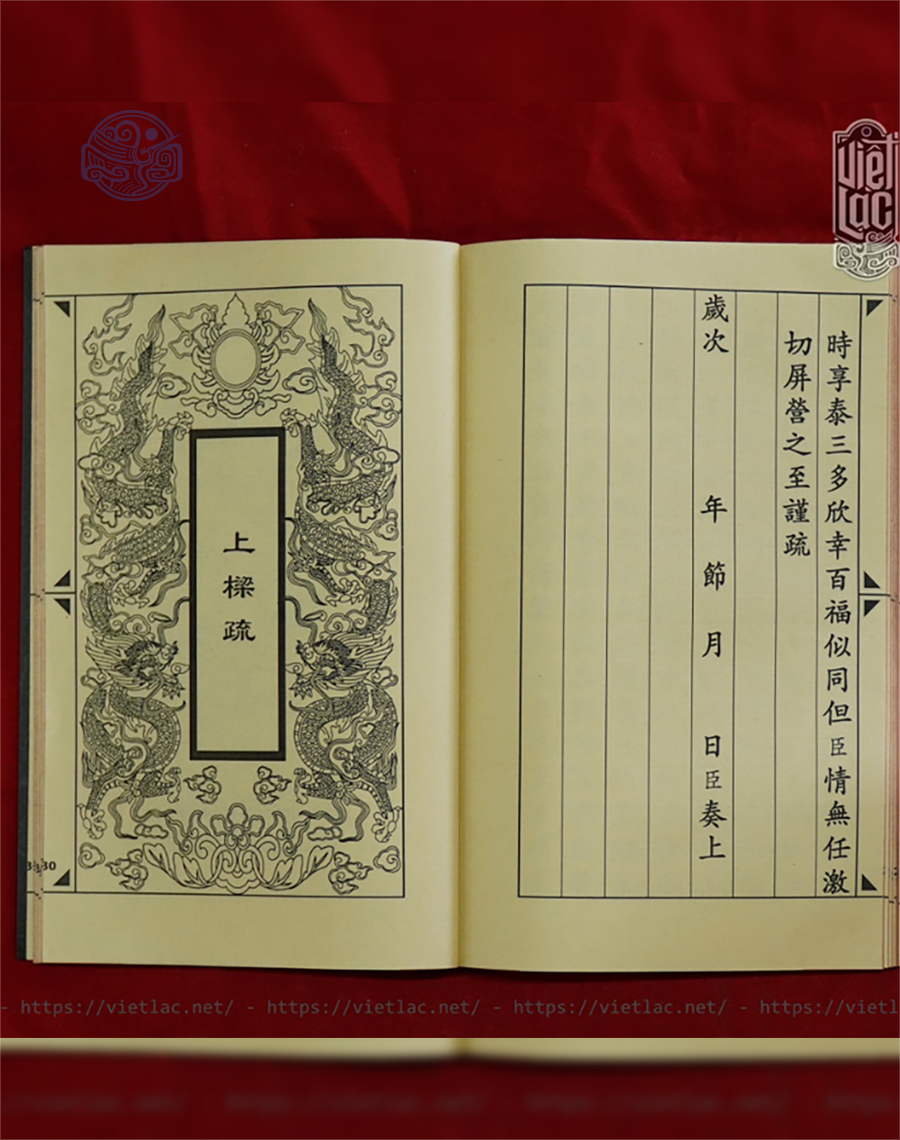 Việt Lạc
時享泰三多欣幸百福似同但臣情無任激
切屏營之至謹疏
歲次 年 節 月 日臣奏上
上樑疏
30
- https://vietlac.net/ - https://vietlac.net/ - https://vietlac.net/ - https://vietl